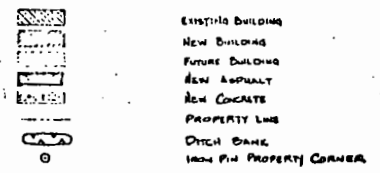 EXISTING BUILDING
NEW BUILDING
FUTURE BUILDING
NEW ASPHALT
NEW CONCRETE
PROPERTY LINE
DITCH BANK
IRON PIN PROPERTY CORNER